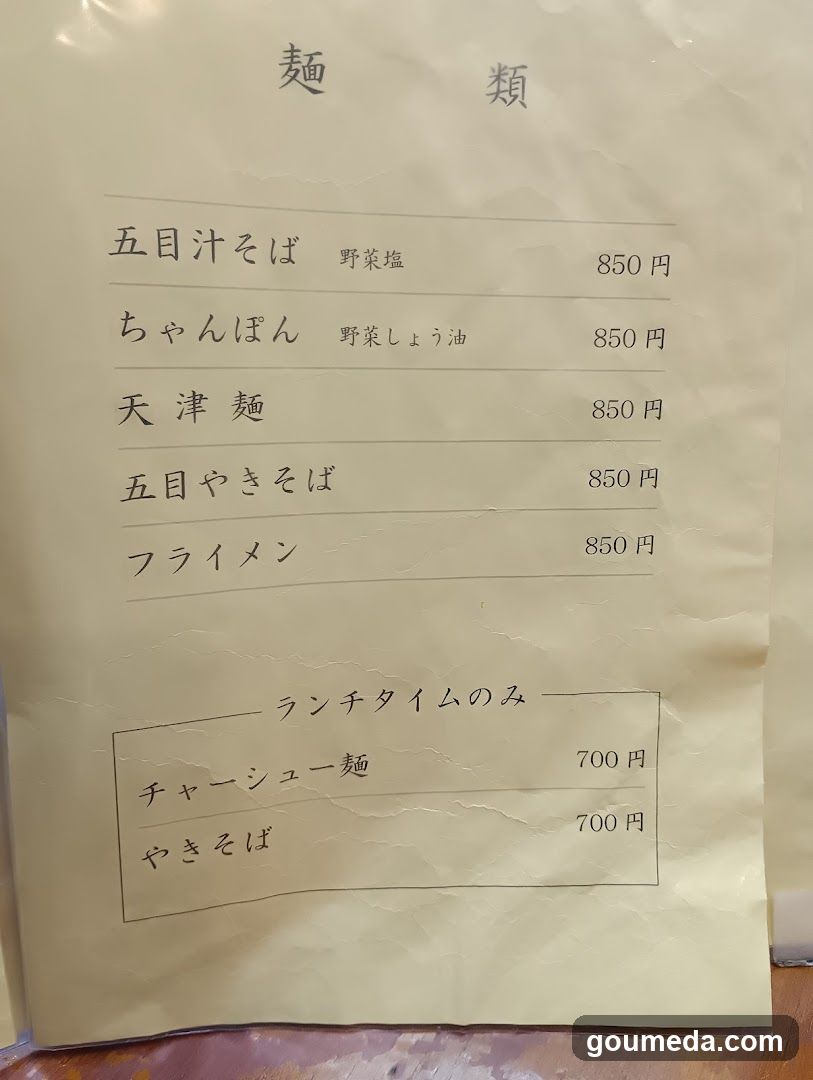 麺 類
五目汁そば 野菜塩 850円
ちゃんぽん 野菜しょう油 850円
天津麺 850円
五目やきそば 850円
フライメン 850円
ランチタイムのみ
チャーシュー麺 700円
やきそば 700円
goumeda.com